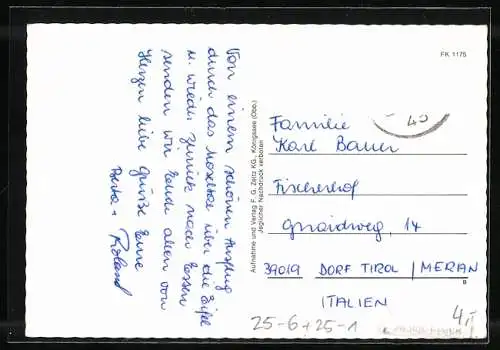 Von einem schönen Ausflug
durch das Moseltal über die Eifel
u. wieder zurück nach Essen
senden wir Euch allen von
Herzen liebe Grüße Eure
Roland
Aufnahme und Verlag F. G. Zeitz KG., Königssee (Obb.)
Jeglicher Nachdruck verboten
FK 1175
Familie
Karl Bauer
Fischerhof
Gnaidweg. 14
39019 DORF TIROL / MERAN
B
ITALIEN
25-6+25-1
4,-